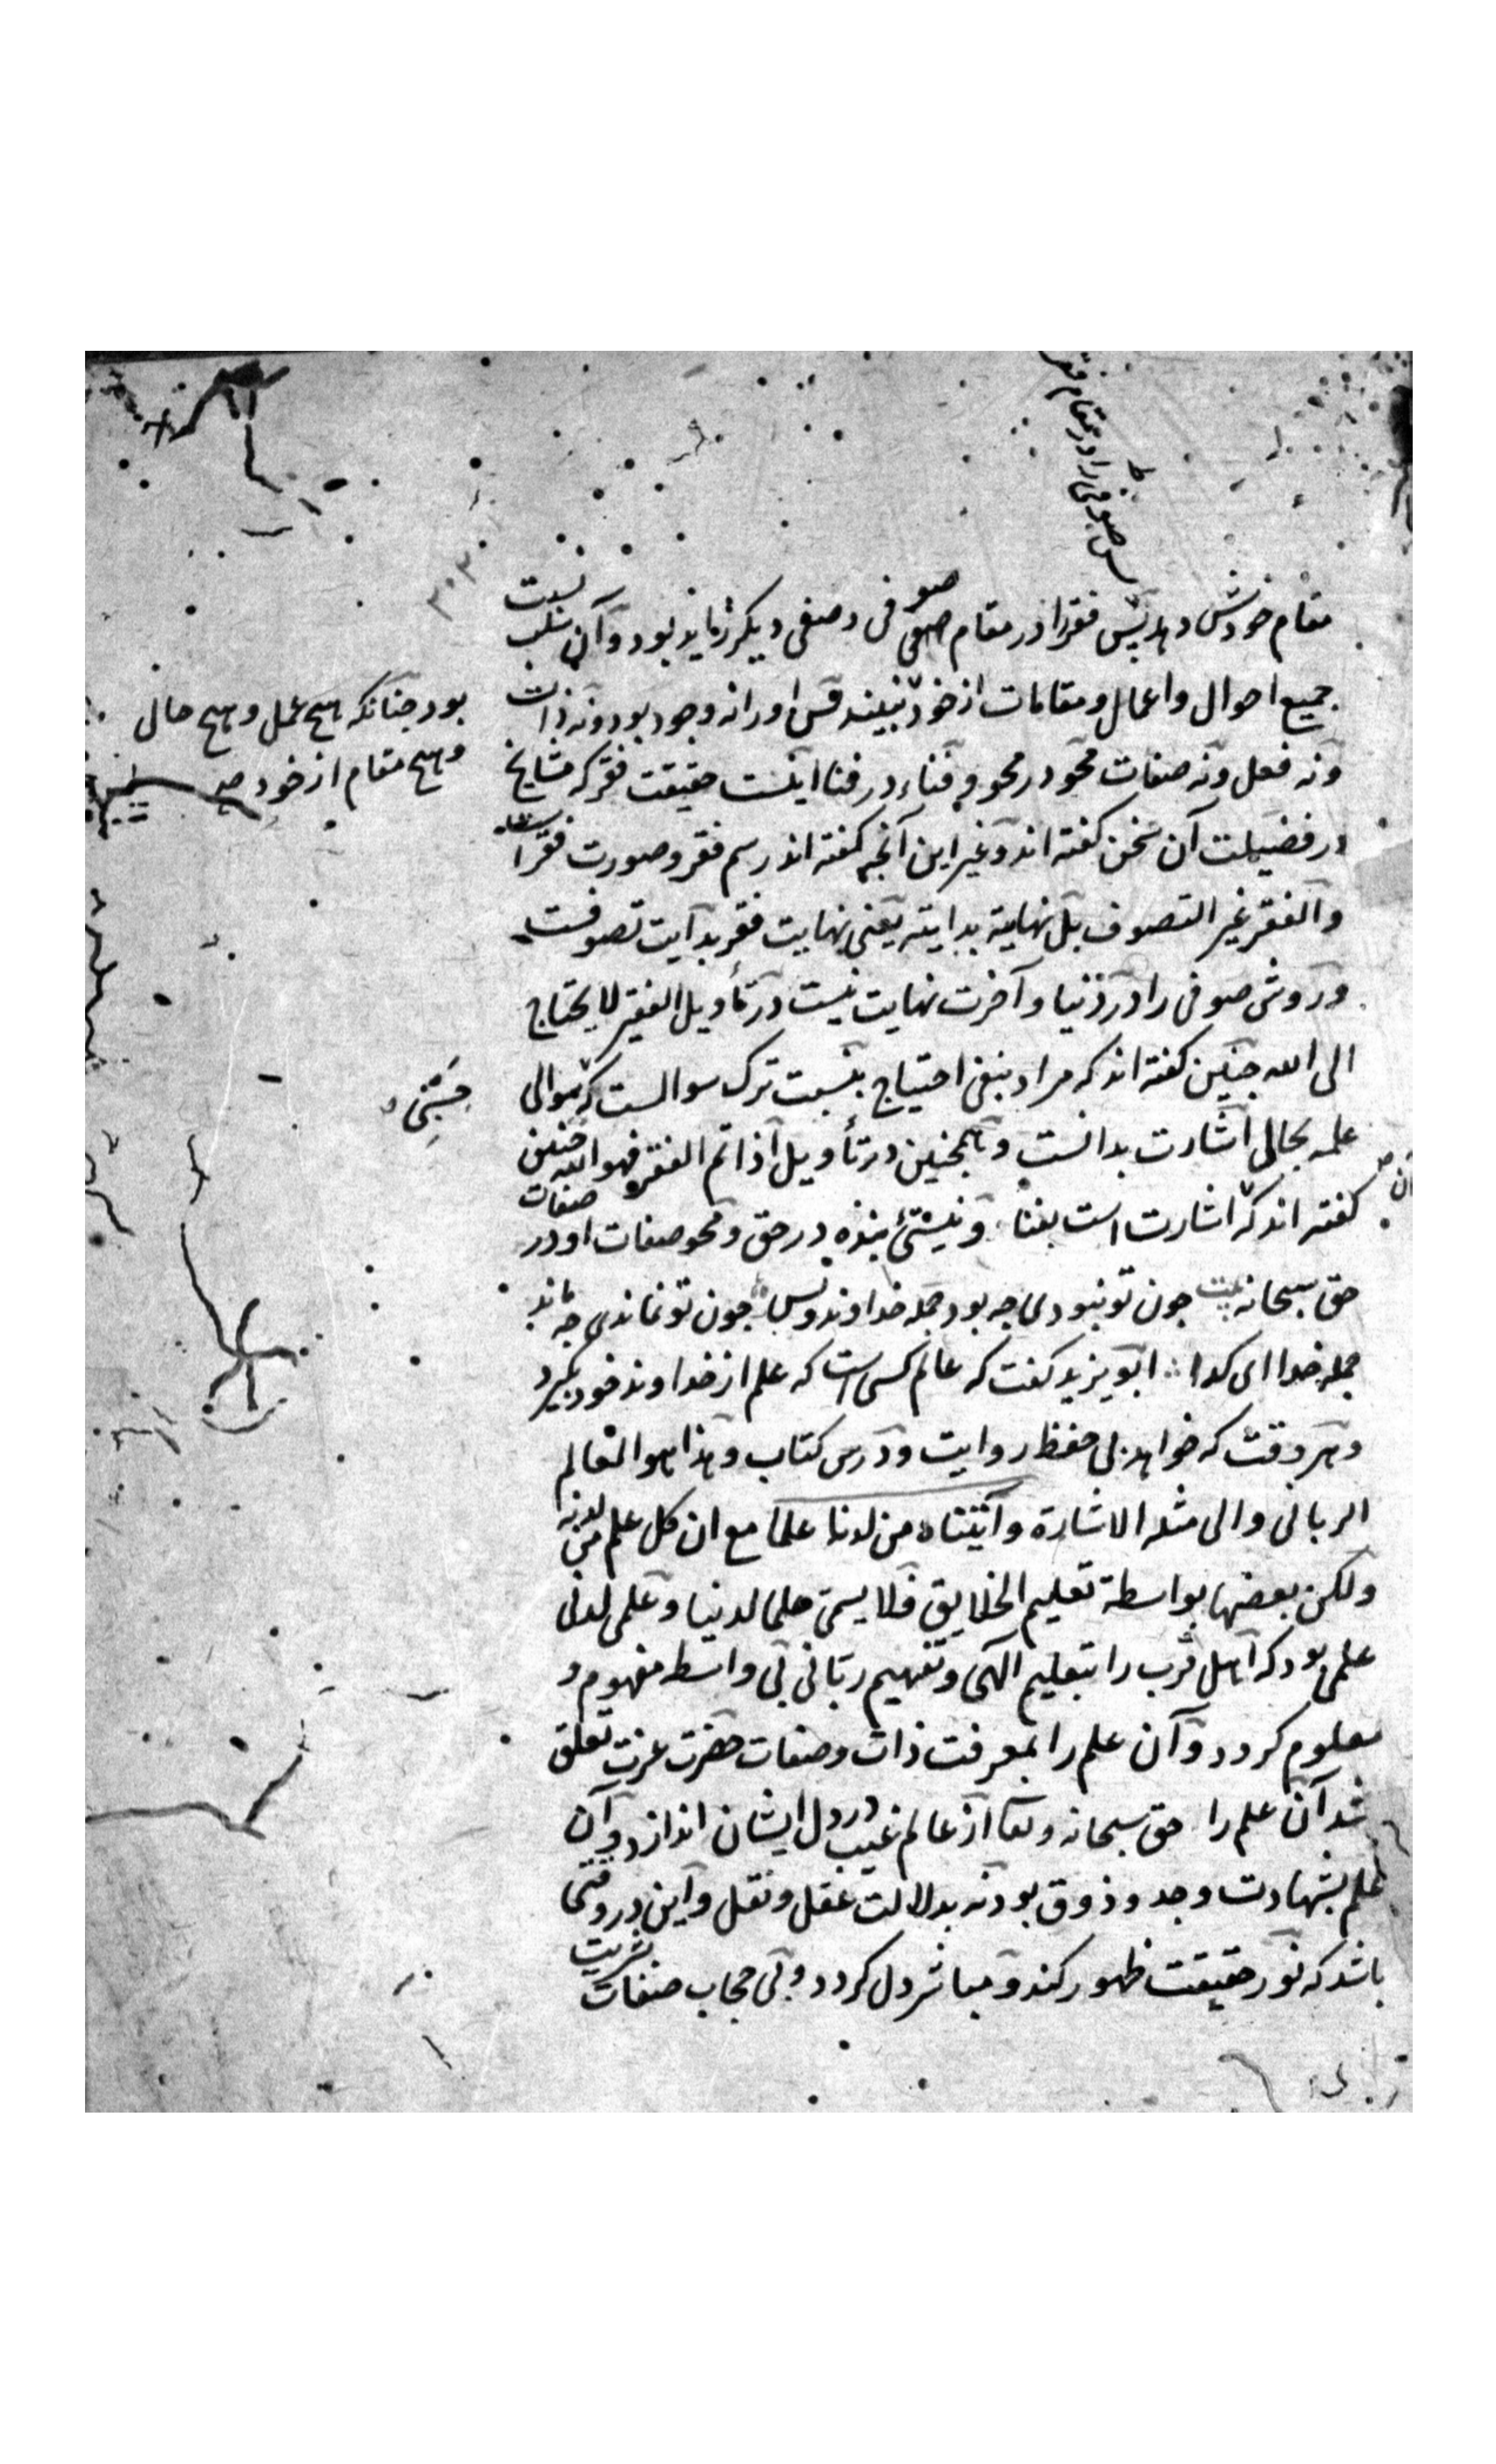 پس صوفی را در مقام فقر
مقام خودش دهد پس فقر را در مقام صوفی وصفی دیکر زاید بود و آن سلب نسبت
جمیع احوال و اعمال و مقامات از خود نبیند قس او را نه وجود بود و نه ذات
بود جنانکه هیچ عمل و هیچ حال
و هیچ مقام از خود
و نه فعل و نه صفات محو در محو و فناء در فنا اینست حقیقت فقر که مشایخ
در فضیلت آن سخن کفته اند و غیر این آنجه کفته اند رسم فقر و صورت فقر است
و الفقر غیر التصوف بل نهایته بدایته یعنی نهایت فقر بدایت تصوفست
و روش صوفی را در دنیا و آخرت نهایت نیست در تأویل الفقیر لا یحتاج
الی الله جنین کفته اند که مراد بنفی احتیاج بنسبت ترک سوالست که سوالی
حسبی
علمه بحالی اشارت بدانست و همجنین در تأویل اذا تم الفقر فهو الله جنین
کفته اند که اشارت است بفنا و نیستئ بنده در حق و محو صفات او در صفات
حق سبحانه بیت جون تو نبودی جه بود جمله خداوند و بس جون تو نماندی جه ماند
جمله خدا ای کدا ابو یزید کفت که عالم کسی است که علم از خداوند خود بکیرد
و هر وقت که خواهد بی حفظ روایت و درس کتاب و هذا هو العالم
الربانی و الی مثله الاشارة و آتیناه من لدنا علما مع ان کل علم من لدنه
ولکن بعضها بواسطة تعلیم الخلایق فلا یسمی علما لدنیا و علمی لدنی
علمی بود که اهل قرب را بتعلیم الهی و تفهیم ربانی بی واسطه مفهوم و
معلوم کردد و آن علم را بمعرفت ذات و صفات حضرت عزت تعلق
شد آن علم را حق سبحانه و تعا از عالم غیب در دل ایشان اندازد و آن
علم بشهادت وجد و ذوق بود نه بدلالت عقل و نقل و این در وقتی
باشد که نور حقیقت ظهور کند و مباشر دل کردد و بی حجاب صفات بشریت